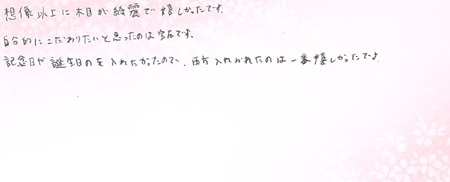 想像以上に木目が綺麗で嬉しかったです。
自分的にこだわりたいと思ったのは宝石です。
記念日か誕生日のを入れたかったので、両方入れられたのは一番嬉しかったです